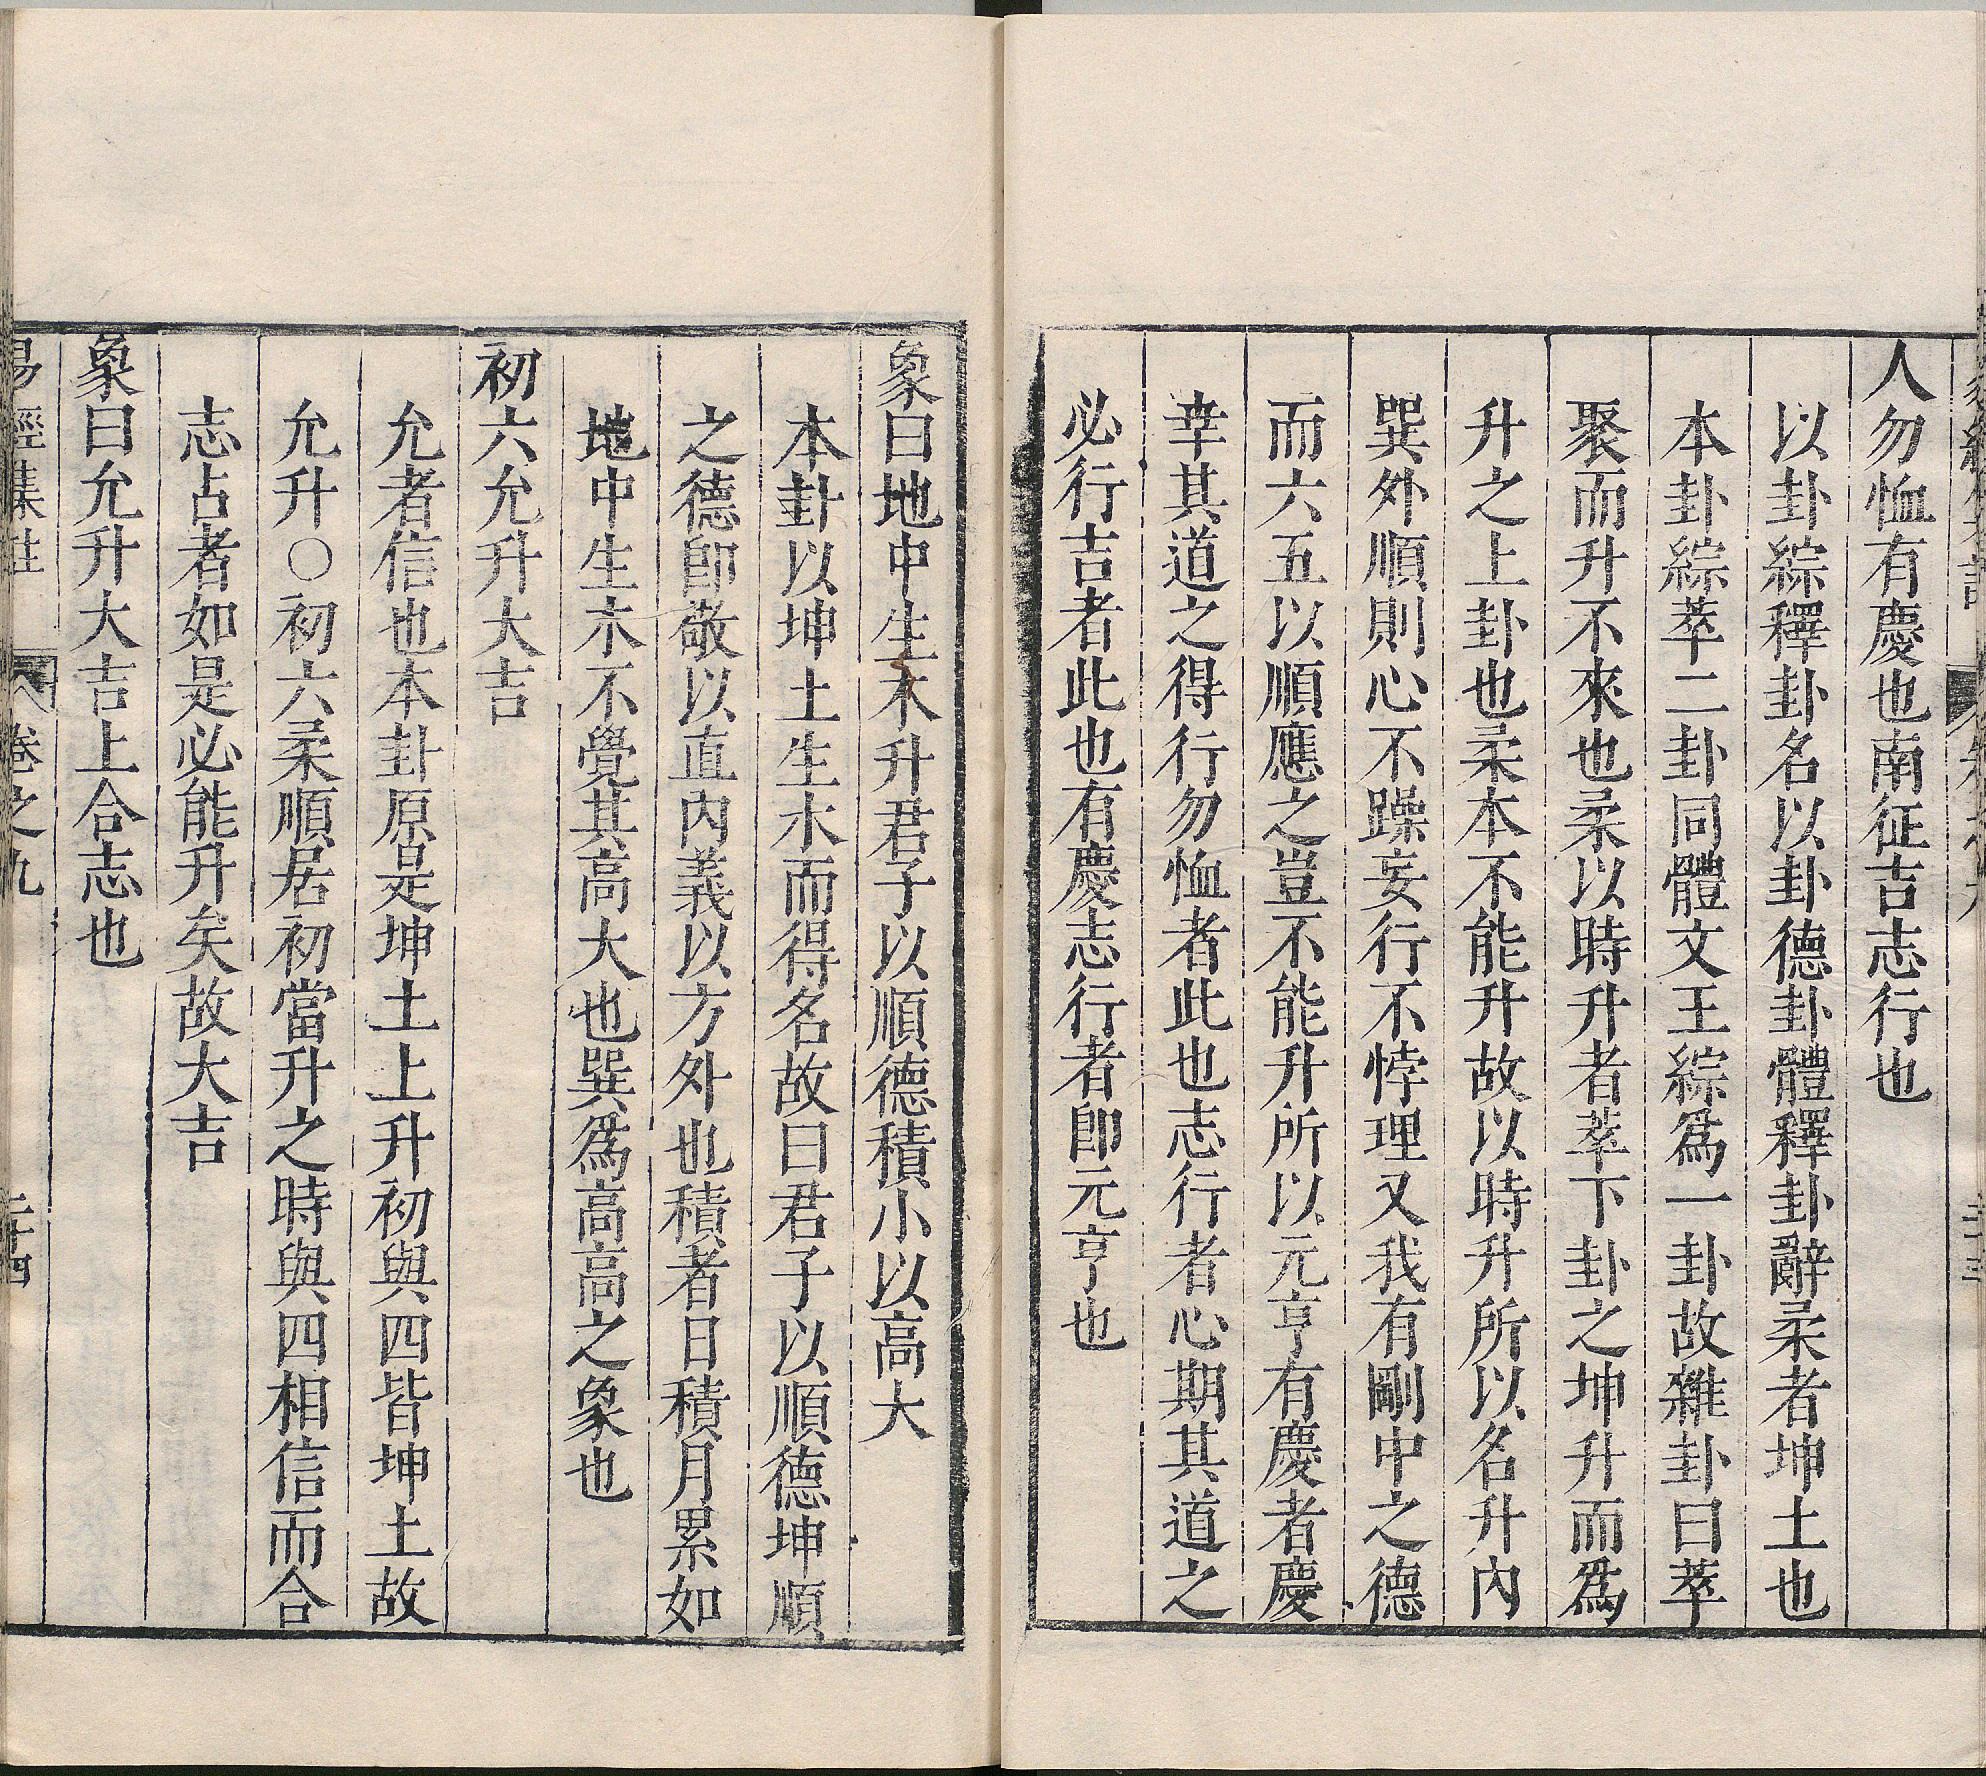 人勿恤有慶也南征吉志行也
以卦綜釋卦名以卦德卦體釋卦辭柔者坤土也
本卦綜萃二卦同體文王綜爲一卦故雜卦曰萃
聚而升不來也柔以時升者萃下卦之坤升而爲
升之上卦也柔本不能升故以時升所以名升內
巽外順則心不躁妄行不悖理又我有剛中之德
而六五以順應之豈不能升所以元亨有慶者慶
幸其道之得行勿恤者此也志行者心期其道之
必行吉者此也有慶志行者即元亨也
象曰地中生木升君子以順德積小以高大
本卦以坤土生木而得名故曰君子以順德坤順
之德即敬以直內義以方外也積者日積月累如
地中生木不覺其高大也巽爲高高之象也
初六允升大吉
允者信也本卦原是坤土上升初與四皆坤土故
允升○初六柔順居初當升之時與四相信而合
志占者如是必能升矣故大吉
象曰允升大吉上合志也
易經集註 卷之九 二十四